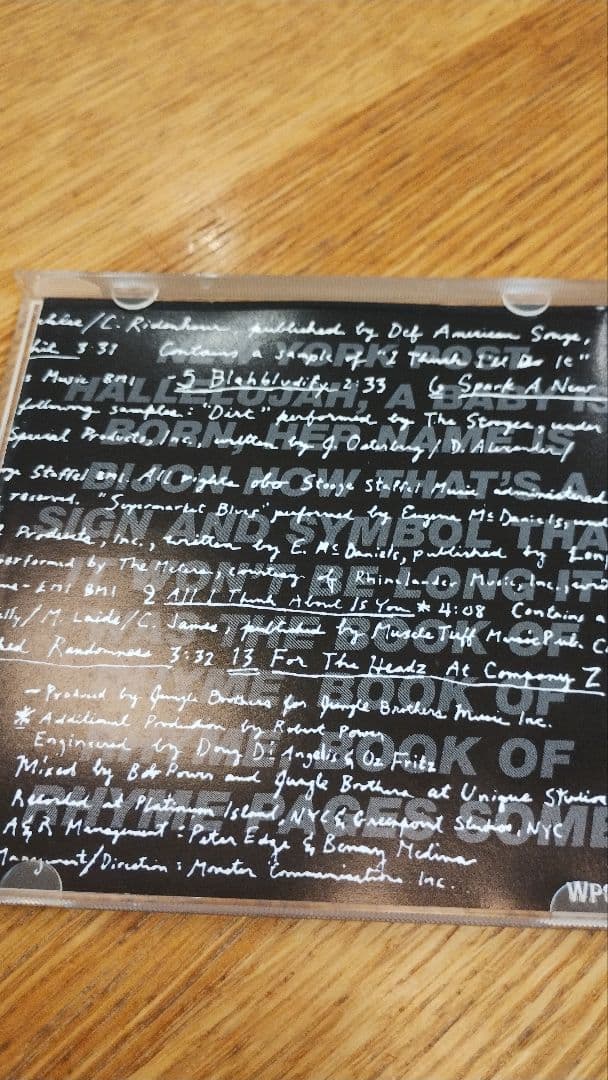 /C. Ridenhour published by Def American Songs,
3:31 Contains a sample of "I Think I'll Do It"
Music BMI - 5 Blahbludify 2:33 6 Spark A New
following samples: "Dirt" performed by The Stooges, under
Special Products, Inc., written by J. Osterberg/D. Alexander/
Staffel BMI. All rights obo Stooge Staffel Music administered
reserved. "Supermarket Blues" performed by Eugene McDaniels, und
Products, Inc., written by E. McDaniels, published by Lon
performed by The Meters, courtesy of Rhinelander Music, Inc.,
- EMI BMI 9 All I Think About Is You * 4:08 Contains a
/M. Laidi/C. James, published by Muscle Tuff Music Pub. C
Randomness 3:32 13 For The Headz At Company Z
- Produced by Jungle Brothers for Jungle Brothers Music Inc.
* Additional Production by Robert Power
Engineered by Doug DiAngelis & Oz Fritz
Mixed by Bob Power and Jungle Brothers at Unique Studios
Recorded at Platinum Island, NYC & Greenpoint Studios, NYC
A&R Management: Peter Edge & Benny Medina
Management/Direction: Monster Communications Inc.
YORK POST
HALLELUJAH, A BABY IS
BORN, HER NAME IS
BIJON NOW THAT'S A
SIGN AND SYMBOL THA
IT WON'T BE LONG IT
WAS THE BOOK OF
RHYME BOOK OF
RHYME BOOK OF
RHYME PAGES SOME
WP